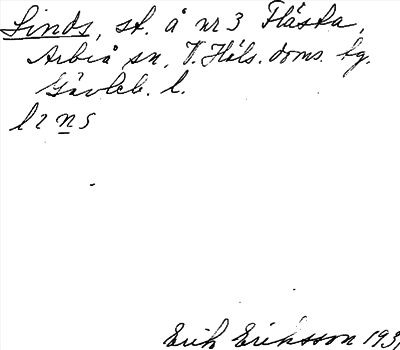 Linds, st. å nr 3 Fläska,
Arbrå sn, V. Häls. doms. tg.
Gävleb. l.
lins
Erik Eriksson 193